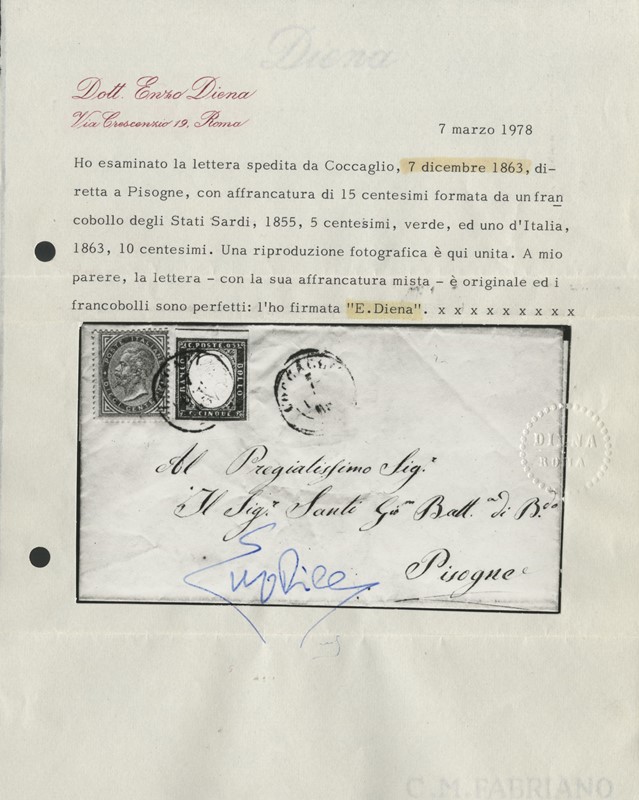 Diena
Dott. Enzo Diena
Via Crescenzio 19, Roma
7 marzo 1978
Ho esaminato la lettera spedita da Coccaglio, 7 dicembre 1863, di-
retta a Pisogne, con affrancatura di 15 centesimi formata da un fran
cobollo degli Stati Sardi, 1855, 5 centesimi, verde, ed uno d'Italia,
1863, 10 centesimi. Una riproduzione fotografica è qui unita. A mio
parere, la lettera - con la sua affrancatura mista - è originale ed i
francobolli sono perfetti: l'ho firmata "E.Diena". x x x x x x x x x
C. POSTE 05
FRANCO
BOLLO
C. CINQUE
DIENA
ROMA
Al Pregiatissimo Sig.r
Il Sig.r Santi Gio Batt. di B.
Pisogne
C.M.FABRIANO